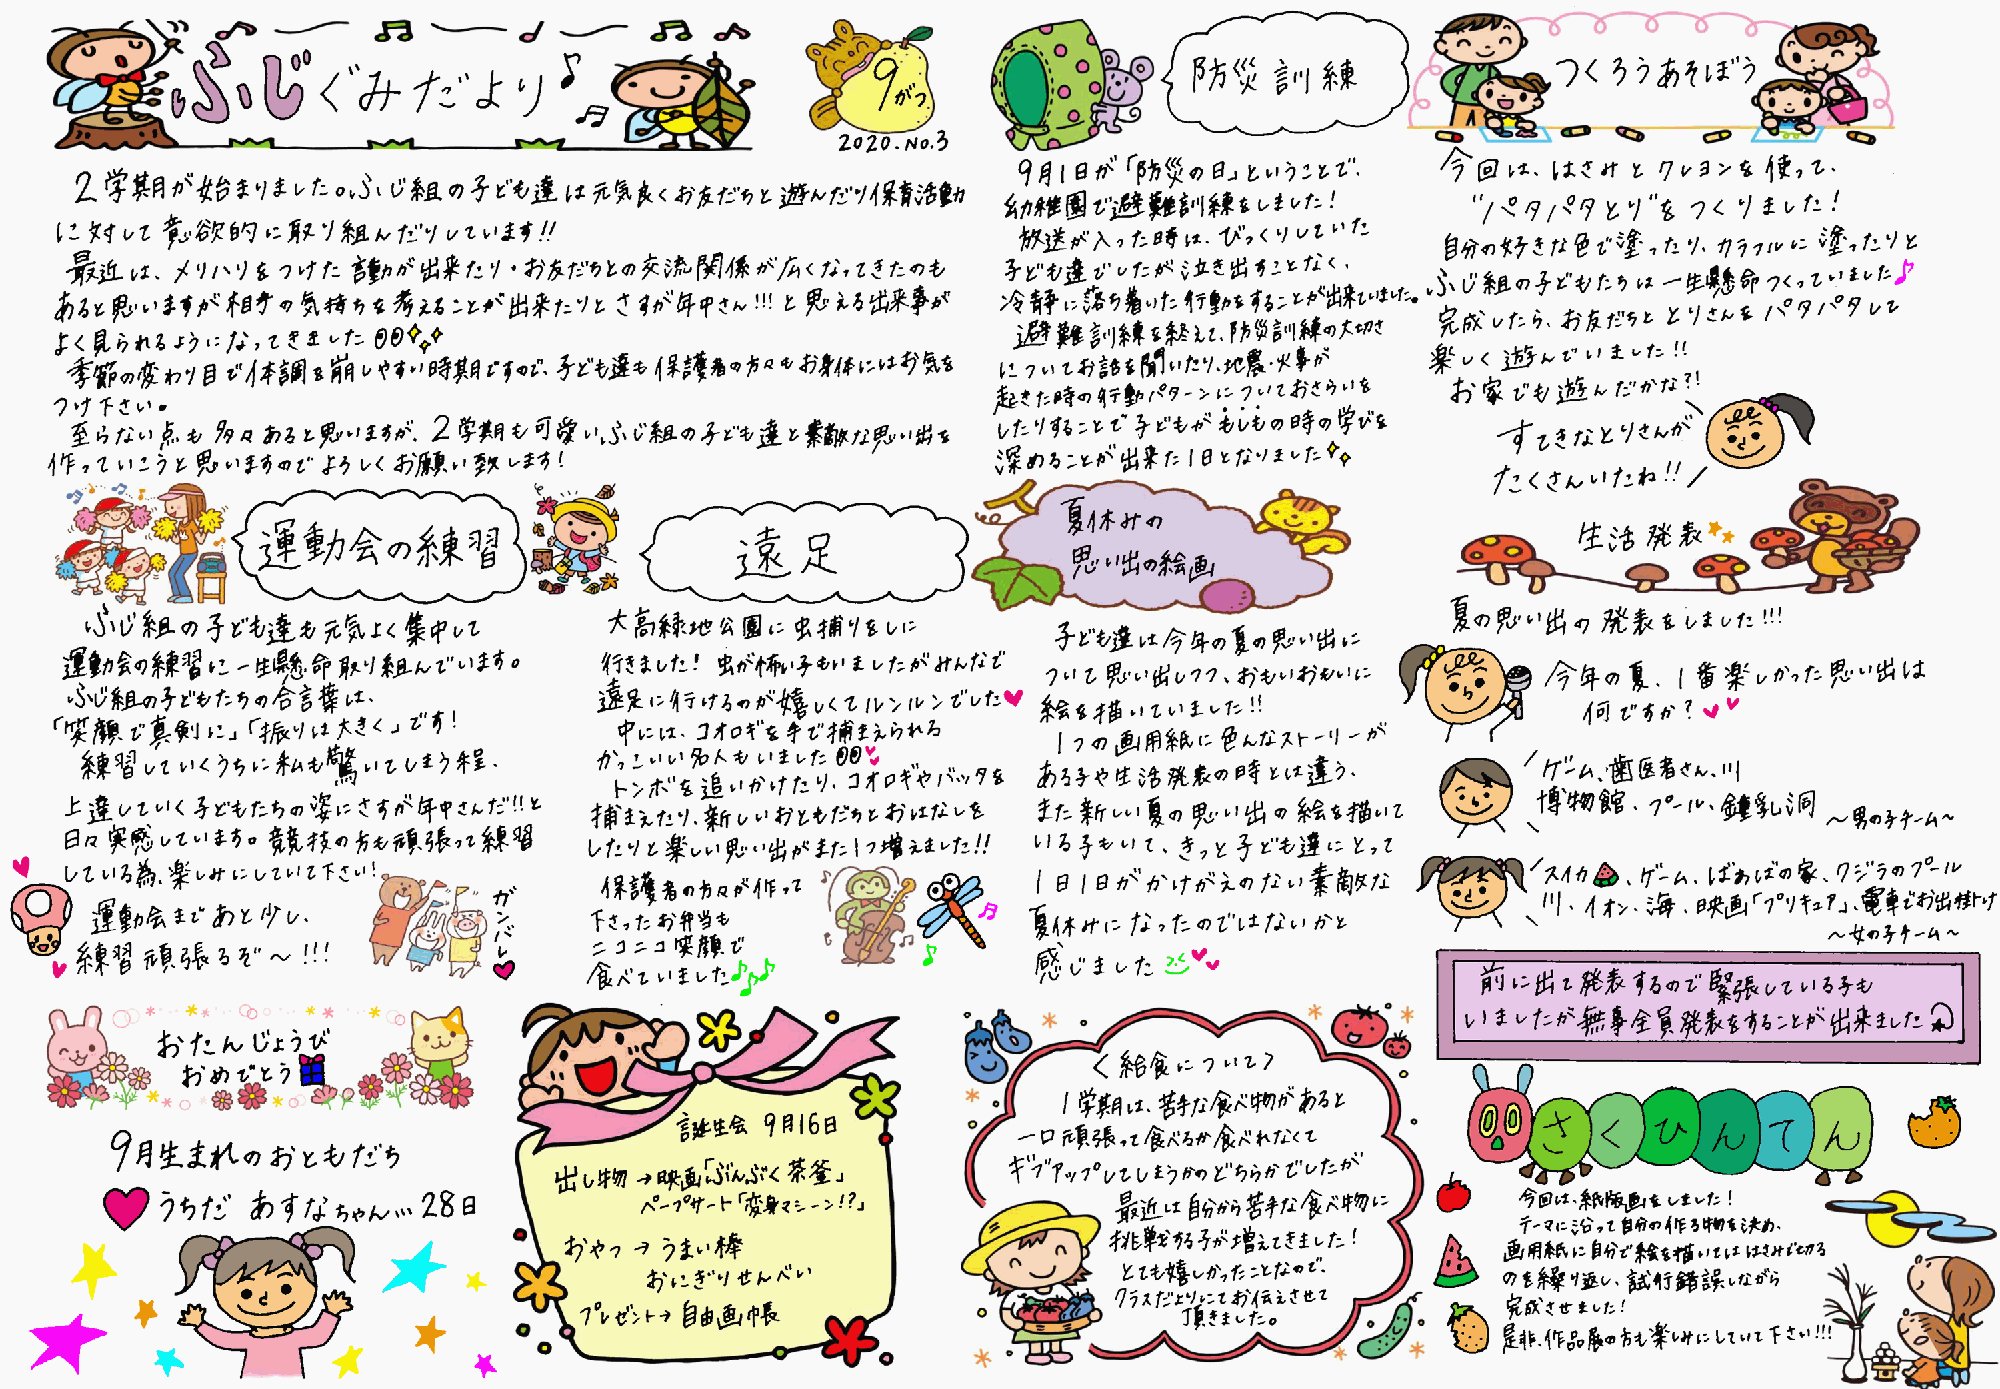 ふじぐみだより♪
9がつ
2020.No.3
2学期が始まりました。ふじ組の子ども達は元気良くお友だちと遊んだり保育活動
に対して意欲的に取り組んだりしています!!
最近は、メリハリをつけた言動が出来たり・お友だちとの交流関係が広くなってきたのも
あると思いますが相手の気持ちを考えることが出来たりとさすが年中さん!!!と思える出来事が
よく見られるようになってきました
季節の変わり目で体調を崩しやすい時期ですので、子ども達も保護者の方々もお身体にはお気を
つけ下さい。
至らない点も多々あると思いますが、2学期も可愛いふじ組の子ども達と素敵な思い出を
作っていこうと思いますのでよろしくお願い致します!
防災訓練
9月1日が「防災の日」ということで、
幼稚園で避難訓練をしました!
放送が入った時は、びっくりしていた
子ども達でしたが泣き出すことなく、
冷静に落ち着いた行動をすることが出来ていました。
避難訓練を終えて、防災訓練の大切さ
についてお話を聞いたり、地震・火事が
起きた時の行動パターンについておさらいを
したりすることで子どもがもしもの時の学びを
深めることが出来た1日となりました
つくろうあそぼう
今回は、はさみとクレヨンを使って、
"パタパタとり"をつくりました!
自分の好きな色で塗ったり、カラフルに塗ったりと
ふじ組の子どもたちは一生懸命つくっていました♪
完成したら、お友だちととりさんをパタパタして
楽しく遊んでいました!!
お家でも遊んだかな?!
すてきなとりさんが
たくさんいたね!!
運動会の練習
ふじ組の子ども達も元気よく集中して
運動会の練習に一生懸命取り組んでいます。
ふじ組の子どもたちの合言葉は、
「笑顔で真剣に」「振りは大きく」です!
練習していくうちに私も驚いてしまう程、
上達していく子どもたちの姿にさすが年中さんだ!!と
日々実感しています。競技の方も頑張って練習
している為、楽しみにしていて下さい!
運動会まであと少し、
練習頑張るぞ〜!!!
ガンバレ
遠足
大高緑地公園に虫捕りをしに
行きました!虫が怖い子もいましたがみんなで
遠足に行けるのが嬉しくてルンルンでした♥
中には、コオロギを手で捕まえられる
かっこいい名人もいました
トンボを追いかけたり、コオロギやバッタを
捕まえたり、新しいおともだちとおはなしを
したりと楽しい思い出がまた1つ増えました!!
保護者の方々が作って
下さったお弁当も
ニコニコ笑顔で
食べていました♪♪♪
夏休みの
思い出の絵画
子ども達は今年の夏の思い出に
ついて思い出しつつ、おもいおもいに
絵を描いていました!!
1つの画用紙に色んなストーリーが
ある子や生活発表の時とは違う、
また新しい夏の思い出の絵を描いて
いる子もいて、きっと子ども達にとって
1日1日がかけがえのない素敵な
夏休みになったのではないかと
感じました
生活発表
夏の思い出の発表をしました!!!
今年の夏、1番楽しかった思い出は
何ですか?
ゲーム、歯医者さん、川
博物館、プール、鍾乳洞
〜男の子チーム〜
スイカ、ゲーム、ばぁばの家、クジラのプール
川、イオン、海、映画「プリキュア」、電車でお出掛け
〜女の子チーム〜
前に出て発表するので緊張している子も
いましたが無事全員発表をすることが出来ました
おたんじょうび
おめでとう
9月生まれのおともだち
うちだ あすなちゃん…28日
誕生会 9月16日
出し物→映画「ぶんぶく茶釜」
ペープサート「変身マシーン!?」
おやつ→うまい棒
おにぎりせんべい
プレゼント→自由画帳
〈給食について〉
1学期は、苦手な食べ物があると
一口頑張って食べるか食べれなくて
ギブアップしてしまうかのどちらかでしたが
最近は自分から苦手な食べ物に
挑戦する子が増えてきました!
とても嬉しかったことなので、
クラスだよりにてお伝えさせて
頂きました。
さくひんてん
今回は、紙版画をしました!
テーマに沿って自分の作る物を決め、
画用紙に自分で絵を描いてははさみで切る
のを繰り返し、試行錯誤しながら
完成させました!
是非、作品展の方も楽しみにしていて下さい!!!